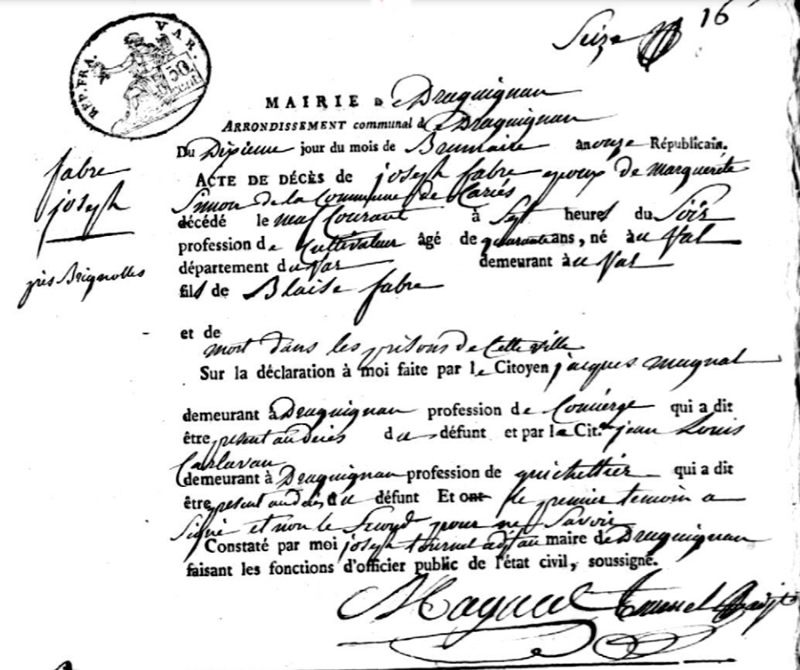 Seize 16
REP. FRA. VAR.
50 CENT
MAIRIE De Draguignan
ARRONDISSEMENT communal de Draguignan
Du Dixieme jour du mois de Brumaire an onze Républicain.
fabre
joseph
près Brignolles
ACTE DE DÉCÈS de joseph fabre epoux de marguerite
Simon de la Commune de Cariès
décédé le neuf Courant à Sept heures du Soir
profession de Cultivateur âgé de quarante ans, né au Val
département du Var demeurant au Val
fils de Blaise fabre
et de
mort dans les prisons de Cette ville
Sur la déclaration à moi faite par le Citoyen jacques magnal
demeurant à Draguignan profession de Concierge qui a dit
être present au décès du défunt et par le Cit.en jean Louis
Carlavan
demeurant à Draguignan profession de guichettier qui a dit
être present au décès du défunt Et ont le premier temoin a
Signé et non le Second pour ne Savoir
Constaté par moi joseph tournel adjt au maire de Draguignan
faisant les fonctions d'officier public de l'état civil, soussigné.
Magnal tournel adjt